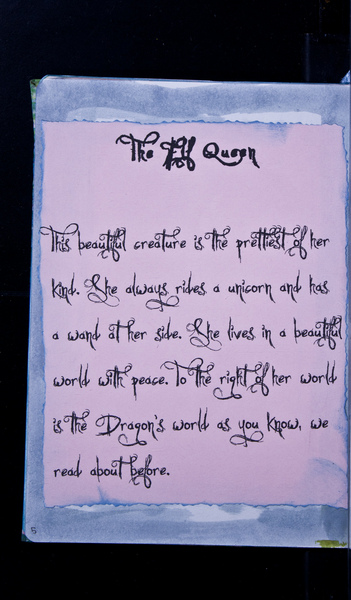 The Elf Queen
This beautiful creature is the prettiest of her
kind. She always rides a unicorn and has
a wand at her side. She lives in a beautiful
world with peace. To the right of her world
is the Dragon's world as you know, we
read about before.